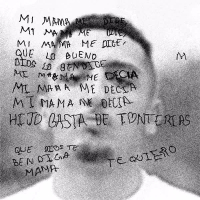 MI MAMA ME DICE
MI MAMA ME DICE,
MI MAMA ME DICE,
QUE LO BUENO
DIOS LO BENDICE
M
MI MAMA ME DECIA
MI MAMA ME DECIA
MI MAMA ME DECIA
HIJO BASTA DE TONTERIAS
QUE DIOS TE
BENDIGA
MAMA
TE QUIERO